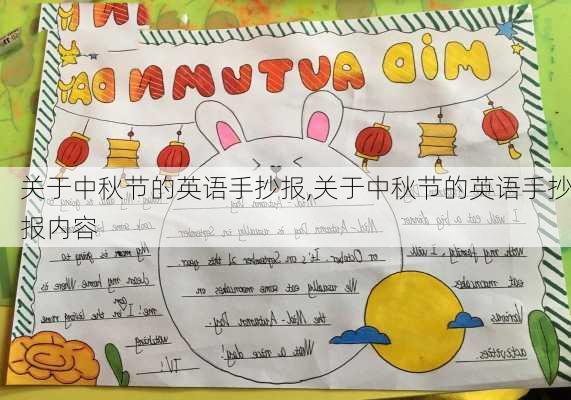 MID AUTUMN DAY
关于中秋节的英语手抄报,关于中秋节的英语手抄
报内容
I will eat a big dinner
with my family, I will
eat mooncakes
Various
activities.
Mid-Autumn Day is usually in September
or October. It's on September 21 this year
We usually eat some mooncakes on
the Mid-Autumn Day.
What a nice day!
My mom is going to
clean my home. Where is
me? I'm in the living room
watching
TV!